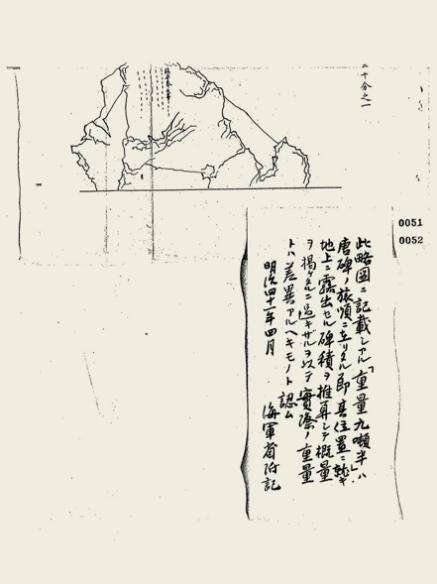 二十分之一
0051
0052
此略図ニ記載シアル「重量九噸半」ハ
唐碑ノ旅順ニ在リタル即其位置ニ就キ
地上ニ露出セル碑積ヲ推算シテ概量
ヲ掲ケタルニ過キサルヲ以テ実際ノ重量
トハ差異アルヘキモノト認ム
明治四十一年四月
海軍省附記